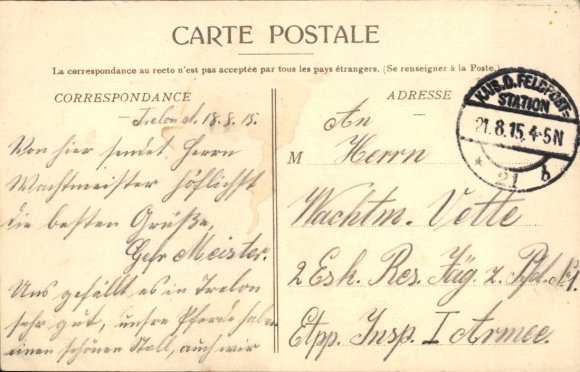 CARTE POSTALE
La correspondance au recto n'est pas acceptée par tous les pays étrangers. (Se renseigner à la Poste.)
CORRESPONDANCE
Trelon d. 18.8.15.
Von hier sendet Herrn
Wachtmeister höflichst
die besten Grüße,
Gefr Meister.
Uns gefällt es in Trelon
sehr gut, unsre Pferde haben
einen schönen Stall, auch wir
ADRESSE
An
M Herrn
Wachtm. Vette
2 Esk. Res. Jäg. z. Pfd. No 1.
Etpp. Insp. I Armee.
KAIS. D. FELDPOST-
STATION
21.8.15. 4-5N
* 21 b